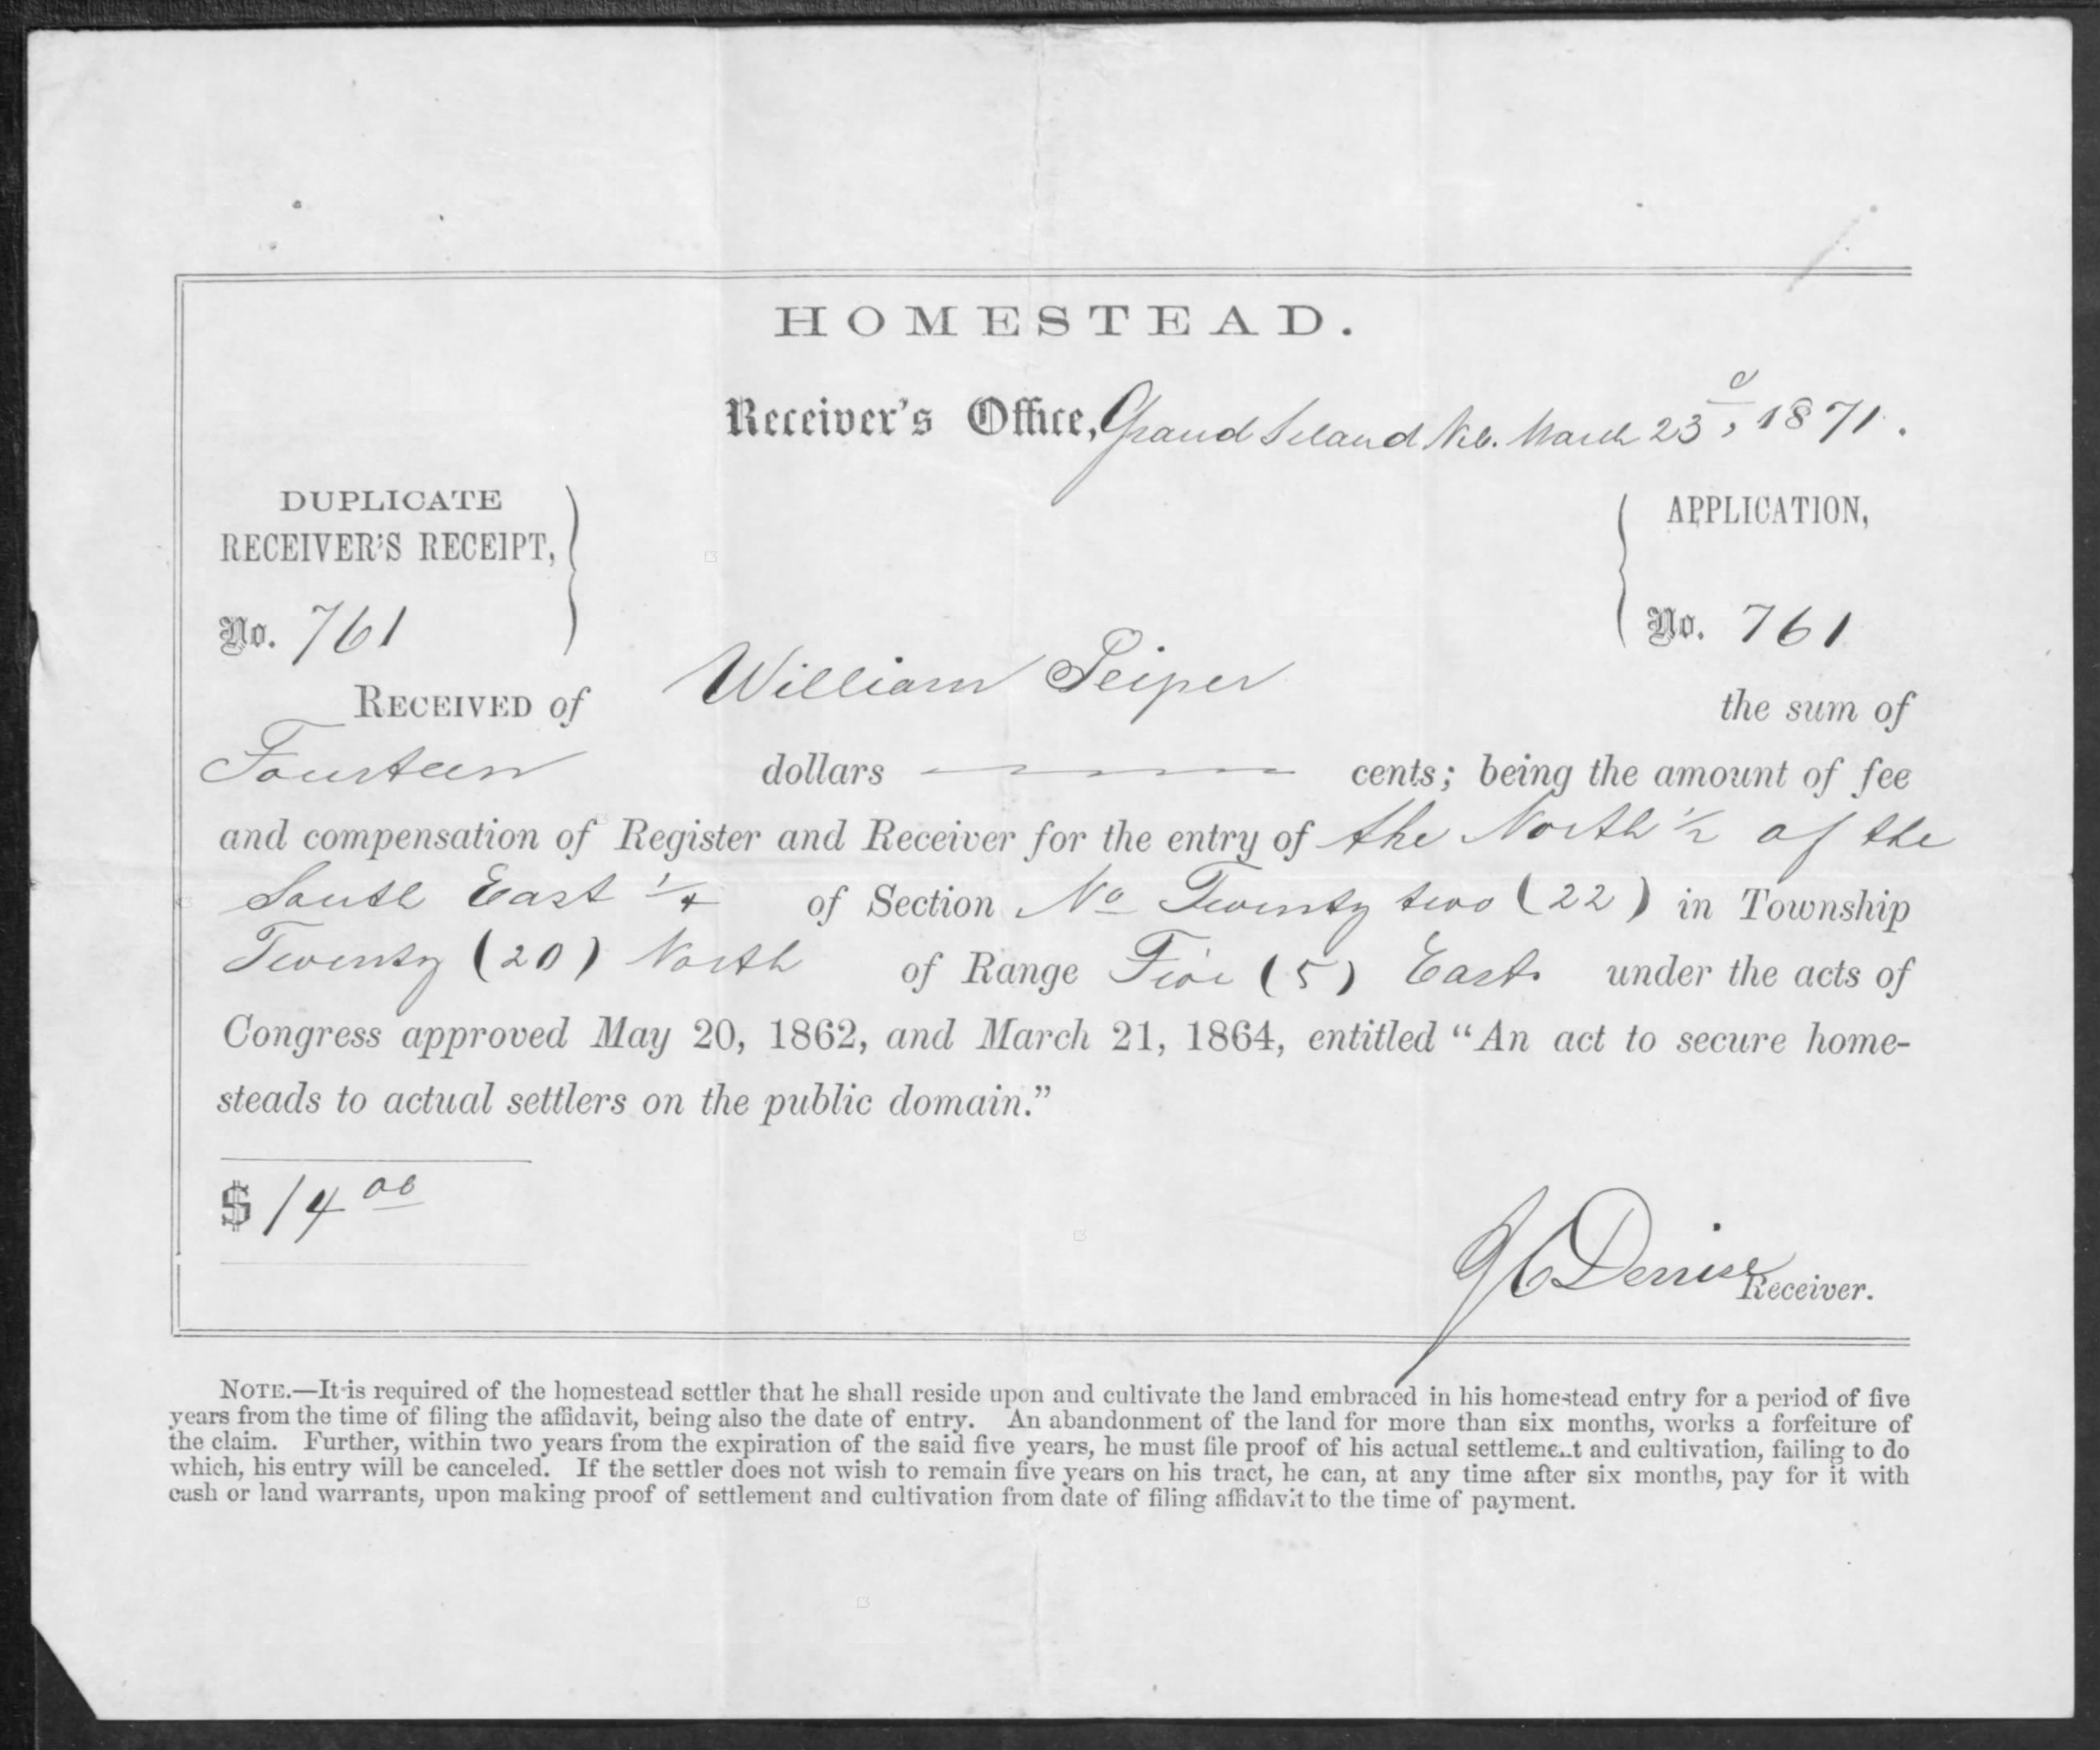 HOMESTEAD.
Receiver's Office, Grand Island Neb. March 23d, 1871.
DUPLICATE
RECEIVER'S RECEIPT,
No. 761
APPLICATION,
No. 761
RECEIVED of William Peiper the sum of
Fourteen dollars ——— cents; being the amount of fee
and compensation of Register and Receiver for the entry of the North ½ of the
South East ¼ of Section No Twenty two (22) in Township
Twenty (20) North of Range Five (5) East under the acts of
Congress approved May 20, 1862, and March 21, 1864, entitled "An act to secure home-
steads to actual settlers on the public domain."
$ 14 00
J C Denise Receiver.
NOTE.—It is required of the homestead settler that he shall reside upon and cultivate the land embraced in his homestead entry for a period of five
years from the time of filing the affidavit, being also the date of entry. An abandonment of the land for more than six months, works a forfeiture of
the claim. Further, within two years from the expiration of the said five years, he must file proof of his actual settlement and cultivation, failing to do
which, his entry will be canceled. If the settler does not wish to remain five years on his tract, he can, at any time after six months, pay for it with
cash or land warrants, upon making proof of settlement and cultivation from date of filing affidavit to the time of payment.